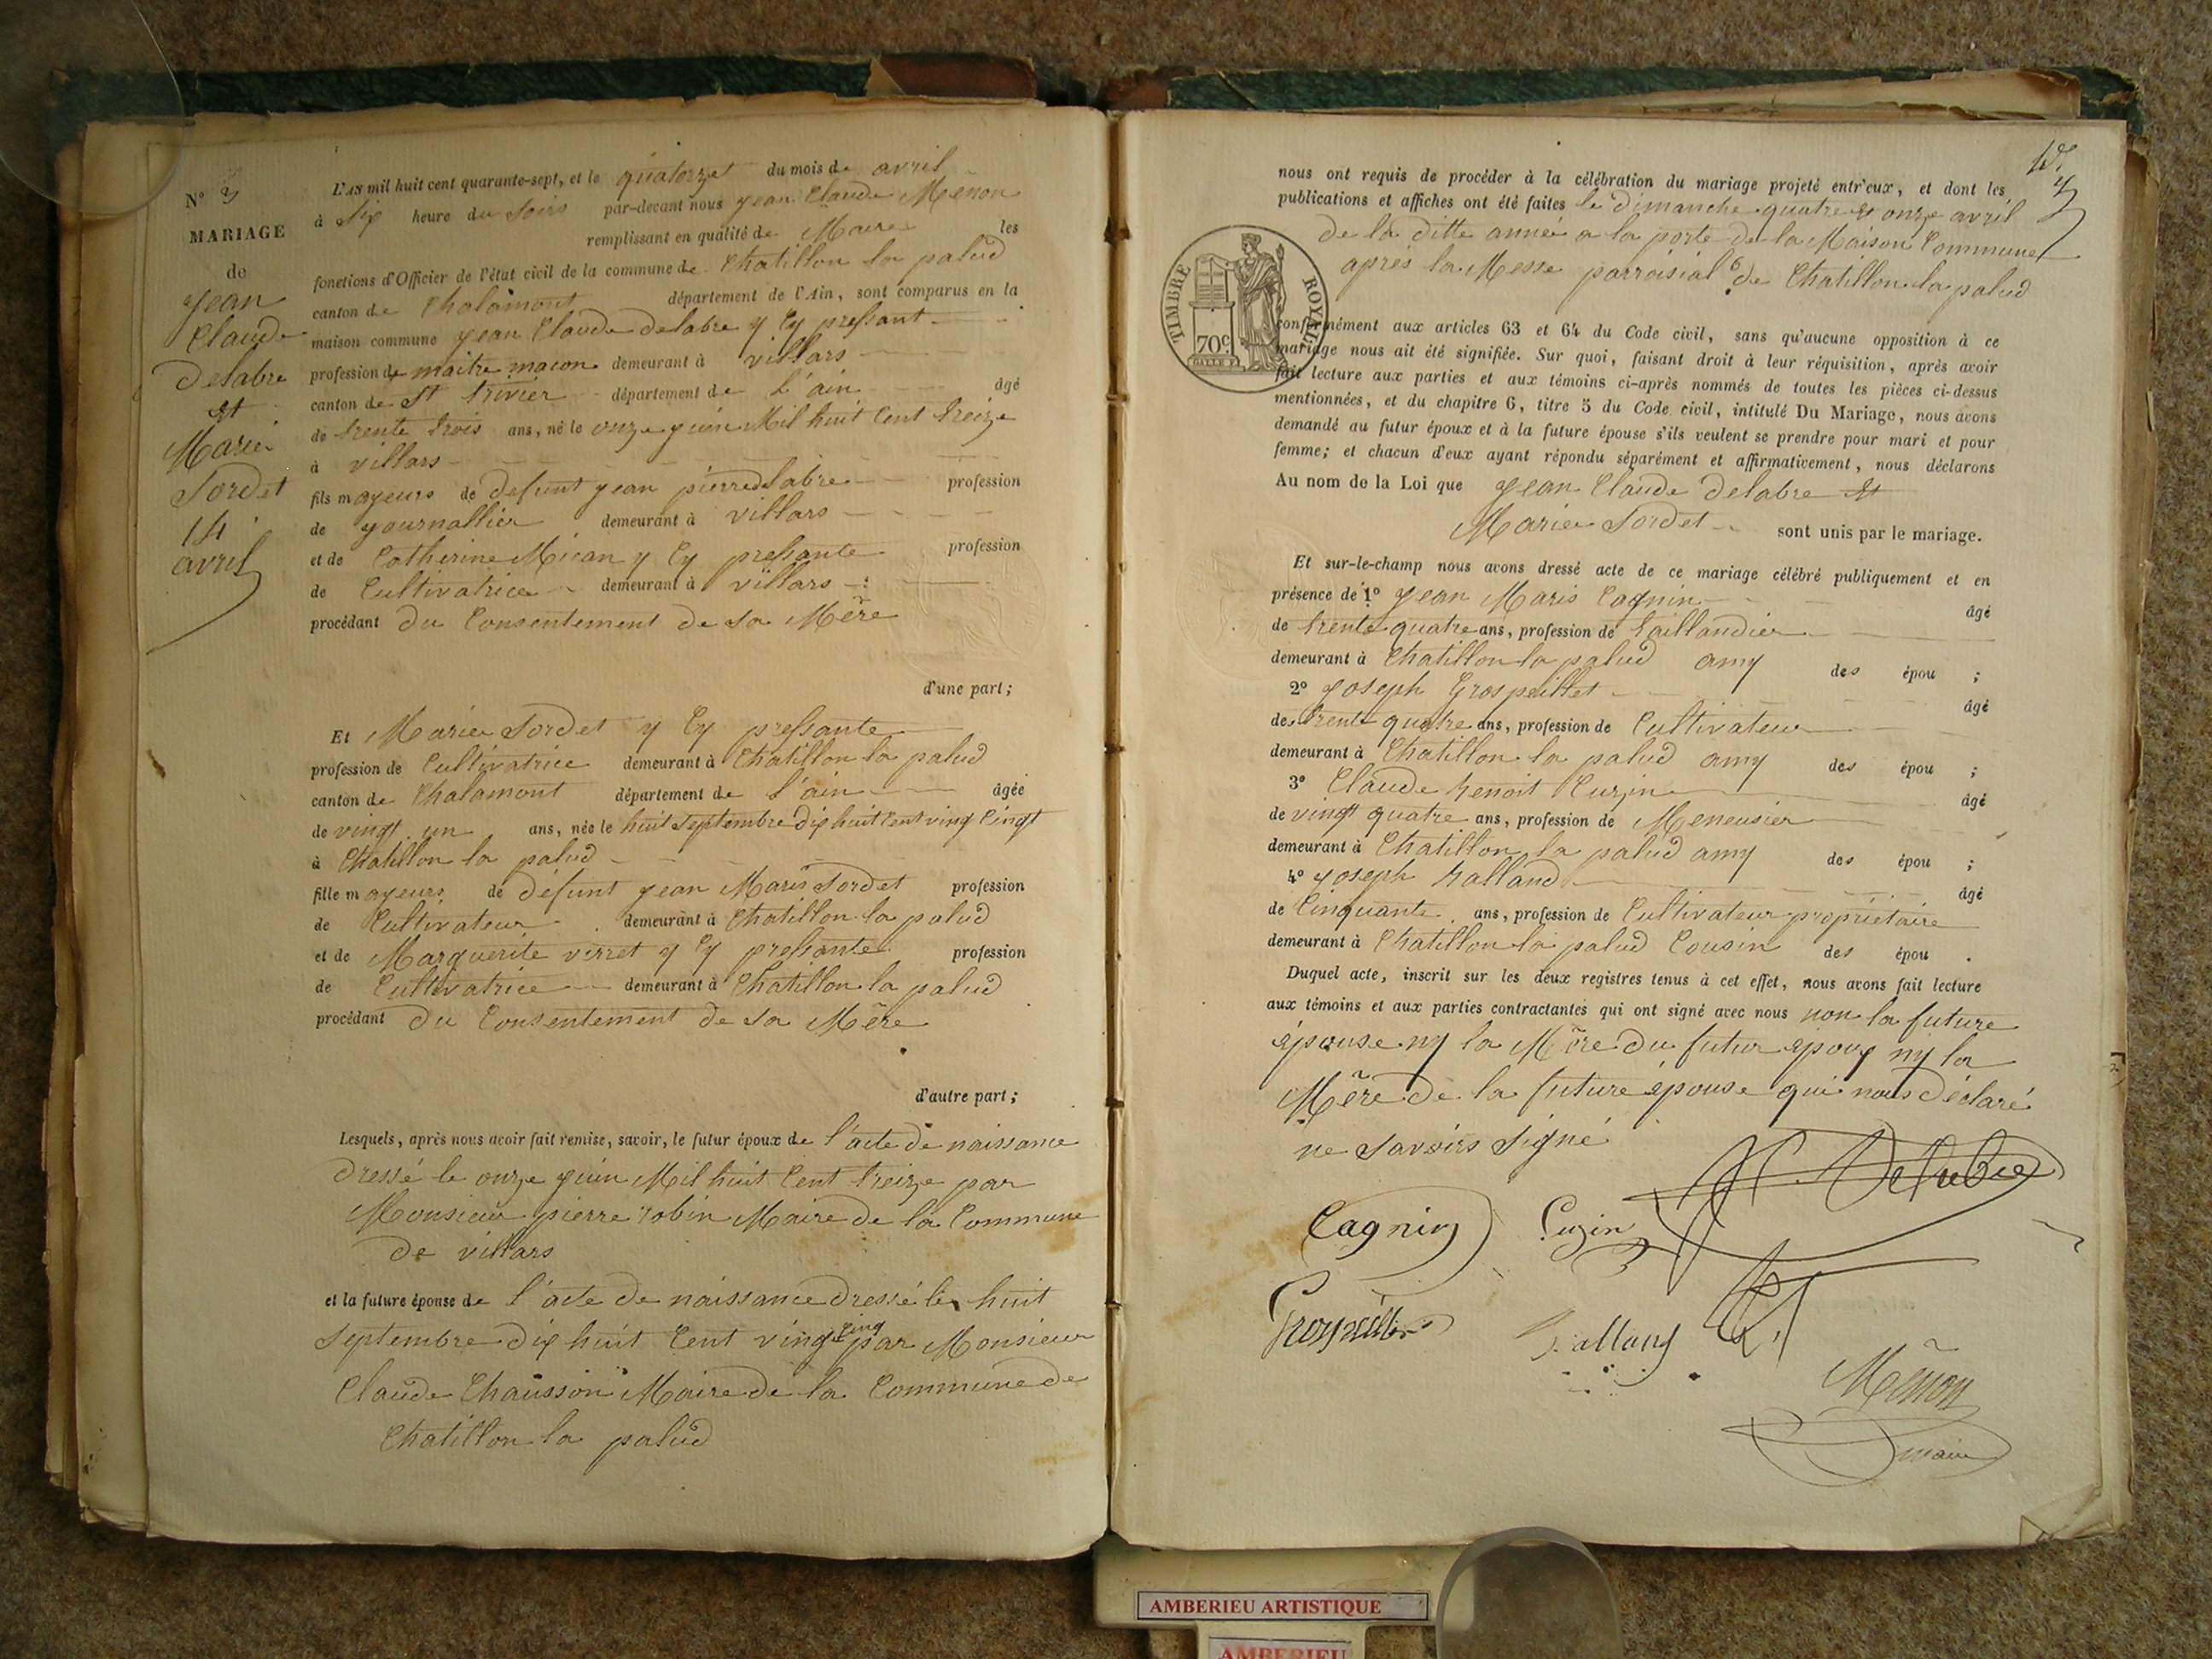 N° 3
MARIAGE
de
Jean
Claude
Delabre
et
Marie
Sordet
14
avril
L'AN mil huit cent quarante-sept, et le quatorze du mois de avril
à six heure du soirs par-devant nous jean Claude Menon
remplissant en qualité de Maire les
fonctions d'Officier de l'état civil de la commune de Chatillon la palud
canton de Chalamont département de l'Ain, sont comparus en la
maison commune jean Claude delabre y Cy pressant
profession de maitre maçon demeurant à villars
canton de St trivier département de L'ain âgé
de trente trois ans, né le onze juin Mil huit Cent treize
à villars
fils mayeurs de defunt jean pierre delabre profession
de journallier demeurant à villars
et de Catherine Mican y Cy pressante profession
de Cultivatrice demeurant à villars
procédant du Consentement de sa Mère
d'une part;
Et Marie Sordet y Cy pressante
profession de Cultivatrice demeurant à Chatillon la palud
canton de Chalamont département de L'ain âgée
de vingt un ans, née le huit septembre dix huit Cent ving Cinqt
à Chatillon la palud
fille mayeurs de défunt jean Marie Sordet profession
de Cultivateur demeurant à Chatillon la palud
et de Marguerite verret y Cy pressante profession
de Cultivatrice demeurant à Chatillon la palud
procédant du Consentement de sa Mère
d'autre part;
Lesquels, après nous avoir fait remise, savoir, le futur époux de l'acte de naissance
dressé le onze juin Mil huit Cent treize par
Monsieur pierre robin Maire de la Commune
de villars
et la future épouse de l'acte de naissance dressé le huit
septembre dix huit Cent ving Cinq par Monsieur
Claude Chausson Maire de la Commune de
Chatillon la palud
nous ont requis de procéder à la célébration du mariage projeté entr'eux, et dont les
publications et affiches ont été faites le dimanche quatre et onze avril
de la ditte année a la porte de la Maison Commune
après la Messe parroisial de Chatillon la palud
TIMBRE ROYAL
70c
conformément aux articles 63 et 64 du Code civil, sans qu'aucune opposition à ce
mariage nous ait été signifiée. Sur quoi, faisant droit à leur réquisition, après avoir
fait lecture aux parties et aux témoins ci-après nommés de toutes les pièces ci-dessus
mentionnées, et du chapitre 6, titre 5 du Code civil, intitulé Du Mariage, nous avons
demandé au futur époux et à la future épouse s'ils veulent se prendre pour mari et pour
femme; et chacun d'eux ayant répondu séparément et affirmativement, nous déclarons
Au nom de la Loi que jean Claude delabre et
Marie Sordet sont unis par le mariage.
Et sur-le-champ nous avons dressé acte de ce mariage célébré publiquement et en
présence de 1° jean Marie Cagnin âgé
de trente quatre ans, profession de taillandier
demeurant à Chatillon la palud amy des épou ;
2° joseph Grospeillet âgé
de trente quatre ans, profession de Cultivateur
demeurant à Chatillon la palud amy des épou ;
3° Claude benoit Cuzin âgé
de vingt quatre ans, profession de Meneusier
demeurant à Chatillon la palud amy des épou ;
4° joseph balland âgé
de Cinquante ans, profession de Cultivateur propriétaire
demeurant à Chatillon la palud Cousin des épou .
Duquel acte, inscrit sur les deux registres tenus à cet effet, nous avons fait lecture
aux témoins et aux parties contractantes qui ont signé avec nous non la future
épouse ny la Mère du futur époux ny la
Mère de la future épouse qui nous déclaré
ne savoirs signé
Delabre
Cagnin Cuzin
balland
Menon
maire
AMBERIEU ARTISTIQUE
AMBERIEU